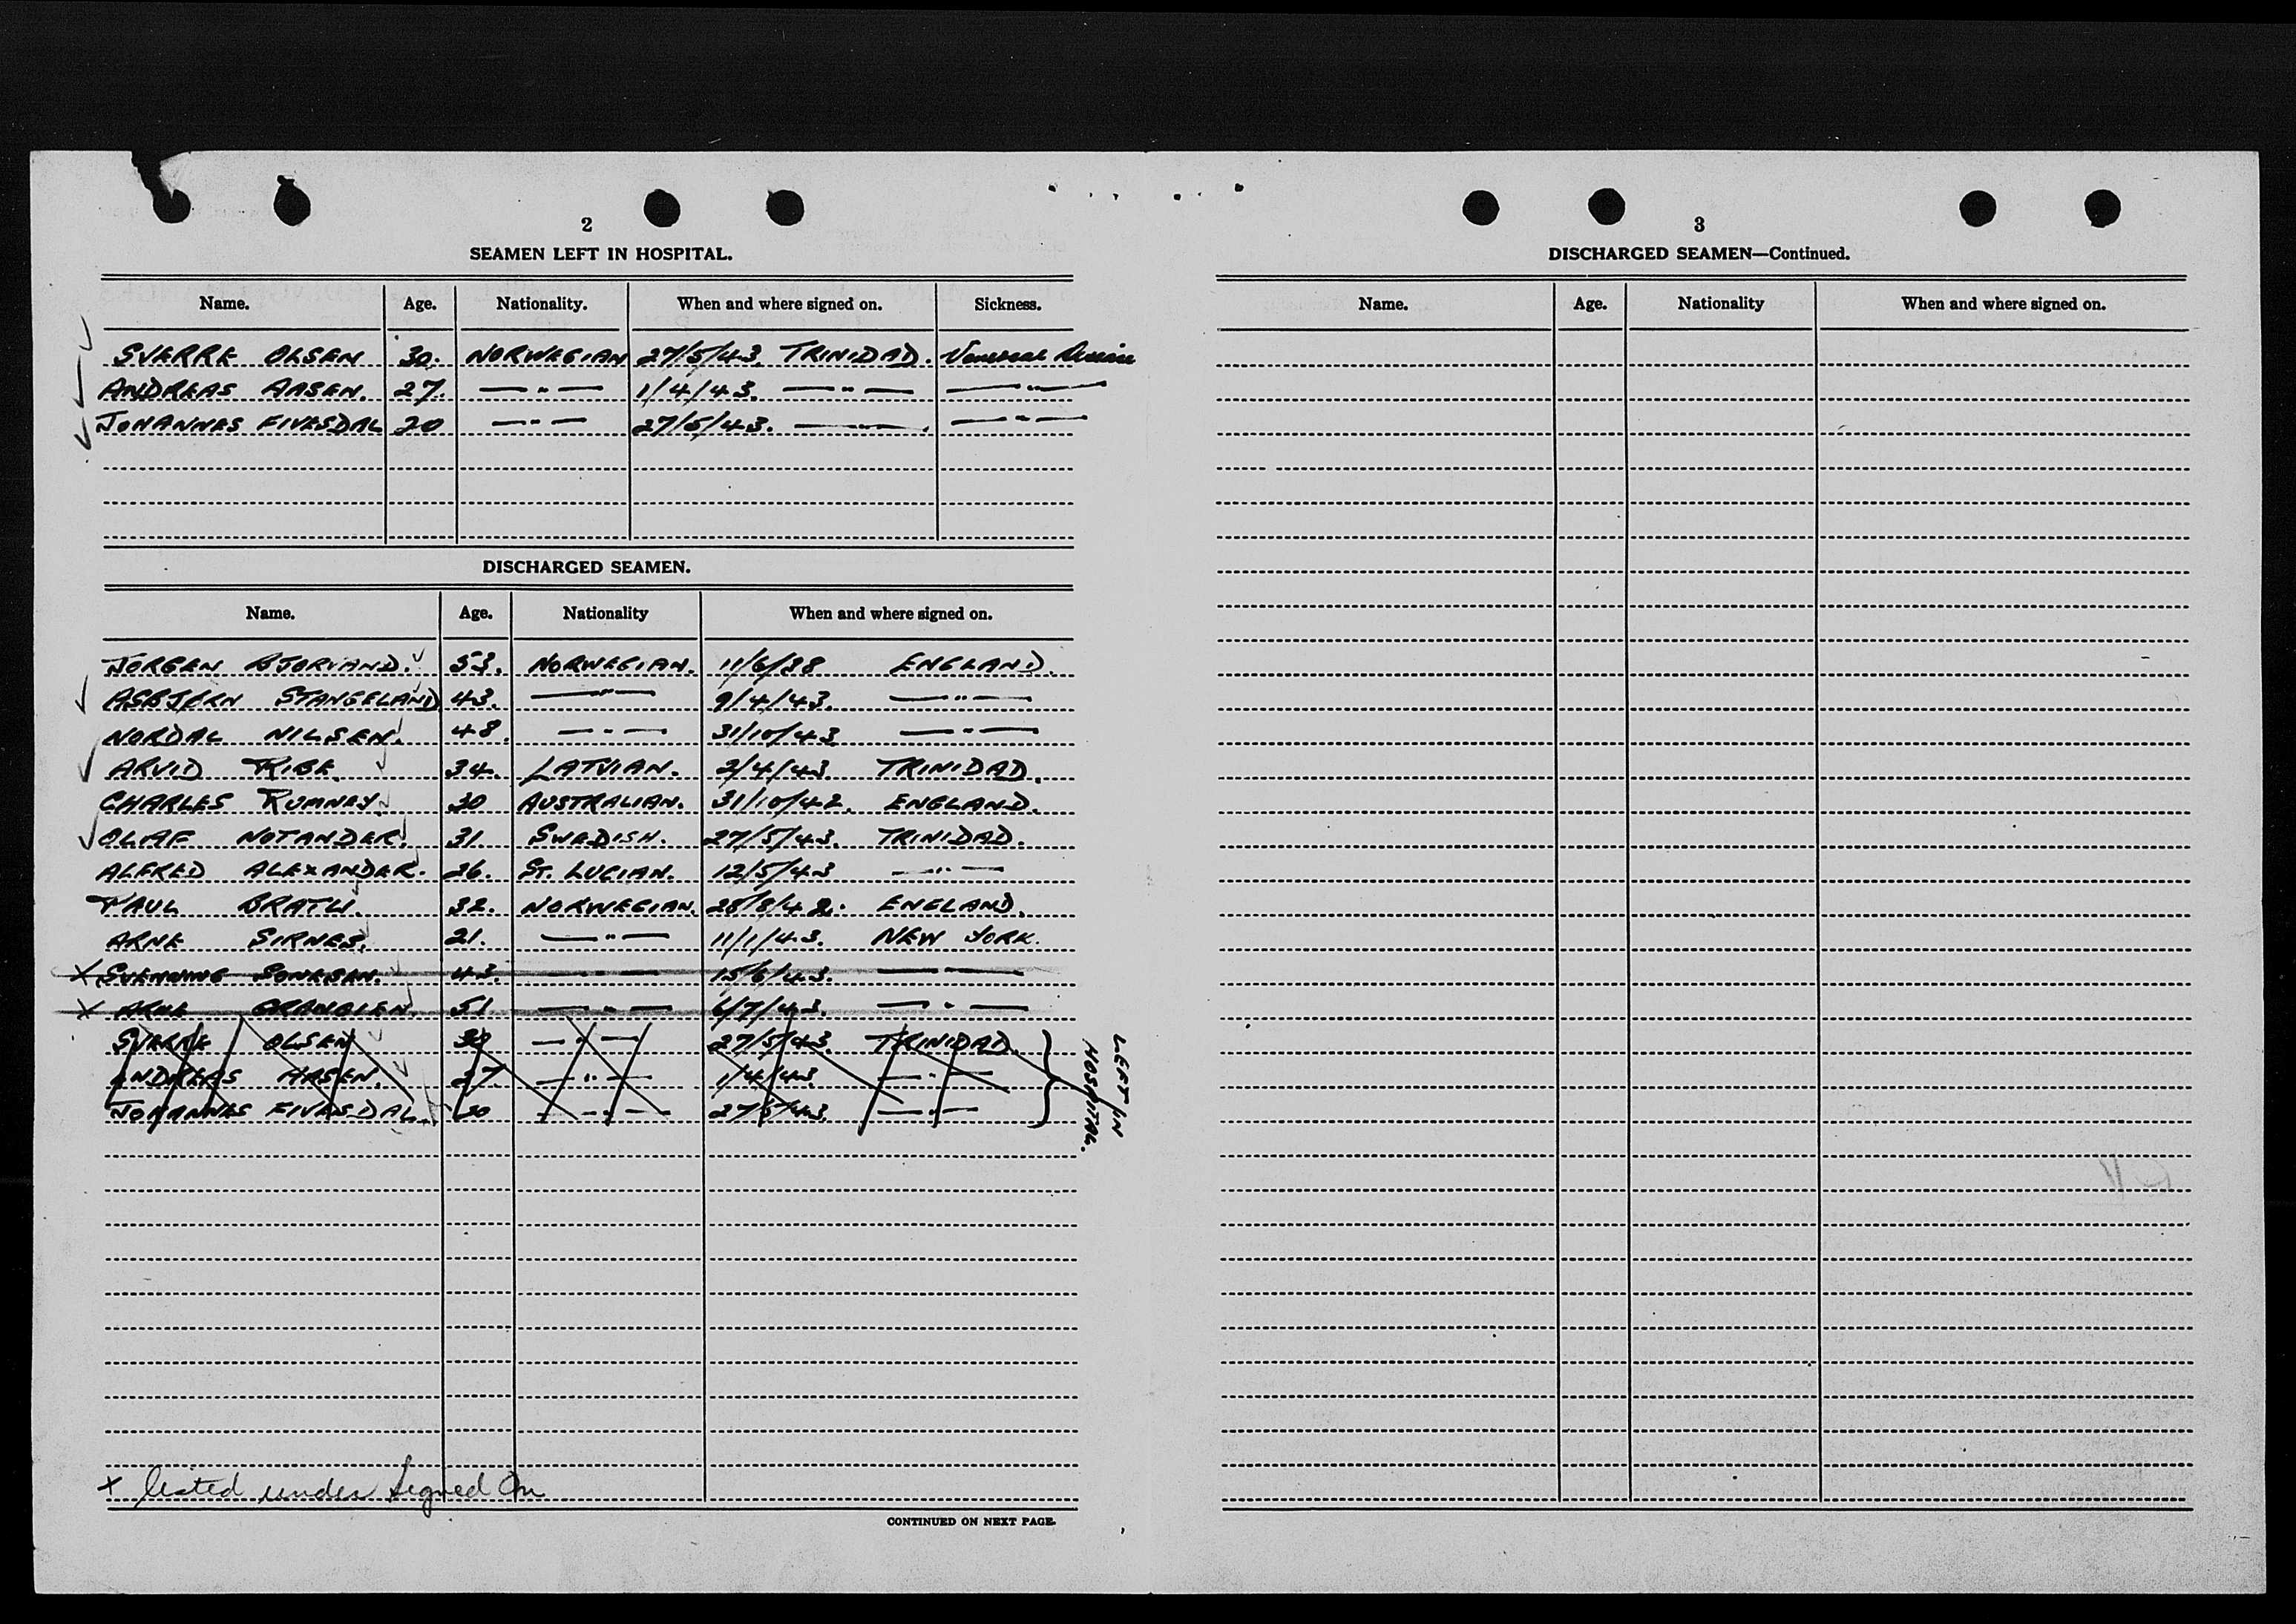 2
SEAMEN LEFT IN HOSPITAL.
Name. Age. Nationality. When and where signed on. Sickness.
SVERRE OLSEN 30. NORWEGIAN 27/5/43. TRINIDAD. Venereal Disease
ANDREAS AASEN. 27. —"— 1/4/43. —"— —"—
JOHANNES FIVESDAL 20 —"— 27/5/43. —"—. —"—
DISCHARGED SEAMEN.
Name. Age. Nationality When and where signed on.
JORGEN BJORVAND. 53. NORWEGIAN. 11/6/38 ENGLAND.
ASBJERN STANGELAND 43. —"— 9/4/43. —"—
NORDAL NILSEN. 48. —"— 31/10/43. —"—
ARVID RIBE. 34. LATVIAN. 2/4/43. TRINIDAD.
CHARLES RUMNEY. 30 AUSTRALIAN. 31/10/42. ENGLAND.
OLAF NOTANDER. 31. SWEDISH. 27/5/43. TRINIDAD.
ALFRED ALEXANDER. 26. ST. LUCIAN. 12/5/43 —"—
PAUL BRATLI. 32. NORWEGIAN. 28/8/42. ENGLAND.
ARNE SIRNES. 21. —"— 11/1/43. NEW YORK.
X SVENNING 43. —"— 15/6/43. —"—
X ARNE 51 —"— 6/7/43. —"—
SVERRE OLSEN 30 —"— 27/5/43. TRINIDAD.
ANDREAS AASEN. 27. —"— 1/4/43. —"—
JOHANNES FIVESDAL. 20 —"— 27/5/43. —"—
LEFT IN
HOSPITAL.
X listed under Signed On
CONTINUED ON NEXT PAGE.
3
DISCHARGED SEAMEN—Continued.
Name. Age. Nationality When and where signed on.